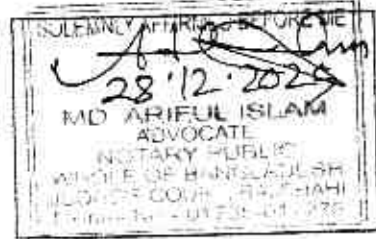 SOLEMNLY AFFIRMED BEFORE ME
28.12.202
MD ARIFUL ISLAM
ADVOCATE
NOTARY PUBLIC
WHOLE OF BANGLADESH
COURT, RAJSHAHI